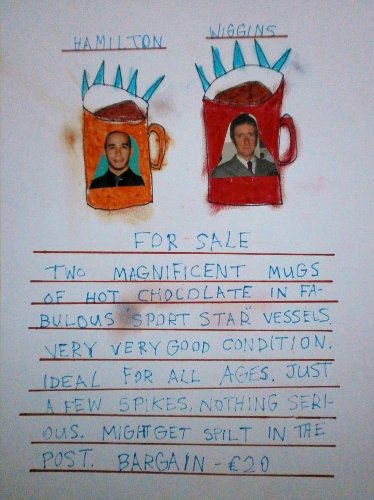 HAMILTON WIGGINS
FOR SALE
TWO MAGNIFICENT MUGS
OF HOT CHOCOLATE IN FA-
BULOUS "SPORT STAR" VESSELS.
VERY VERY GOOD CONDITION.
IDEAL FOR ALL AGES. JUST
A FEW SPIKES, NOTHING SERI-
OUS. MIGHT GET SPILT IN THE
POST. BARGAIN - €20